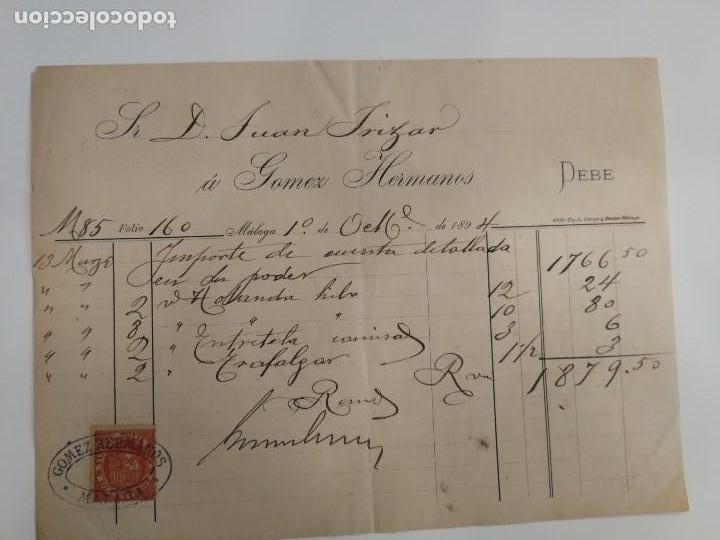 todocoleccion
Sr. D. Juan Irizar
á Gomez Hermanos DEBE
M85 Folio 160 Málaga 1º. de de 1894
13 Marzo Importe de cuenta detallada 1766 50
" " en su poder
" " 2 vs Holanda hilo 12 24
" " 8 " " " 10 80
" " 2 " Entretela camisas 3 6
" " 2 " Trafalgar 1 1/2 3
Rvn 1879.50
GOMEZ HERMANOS
MALAGA